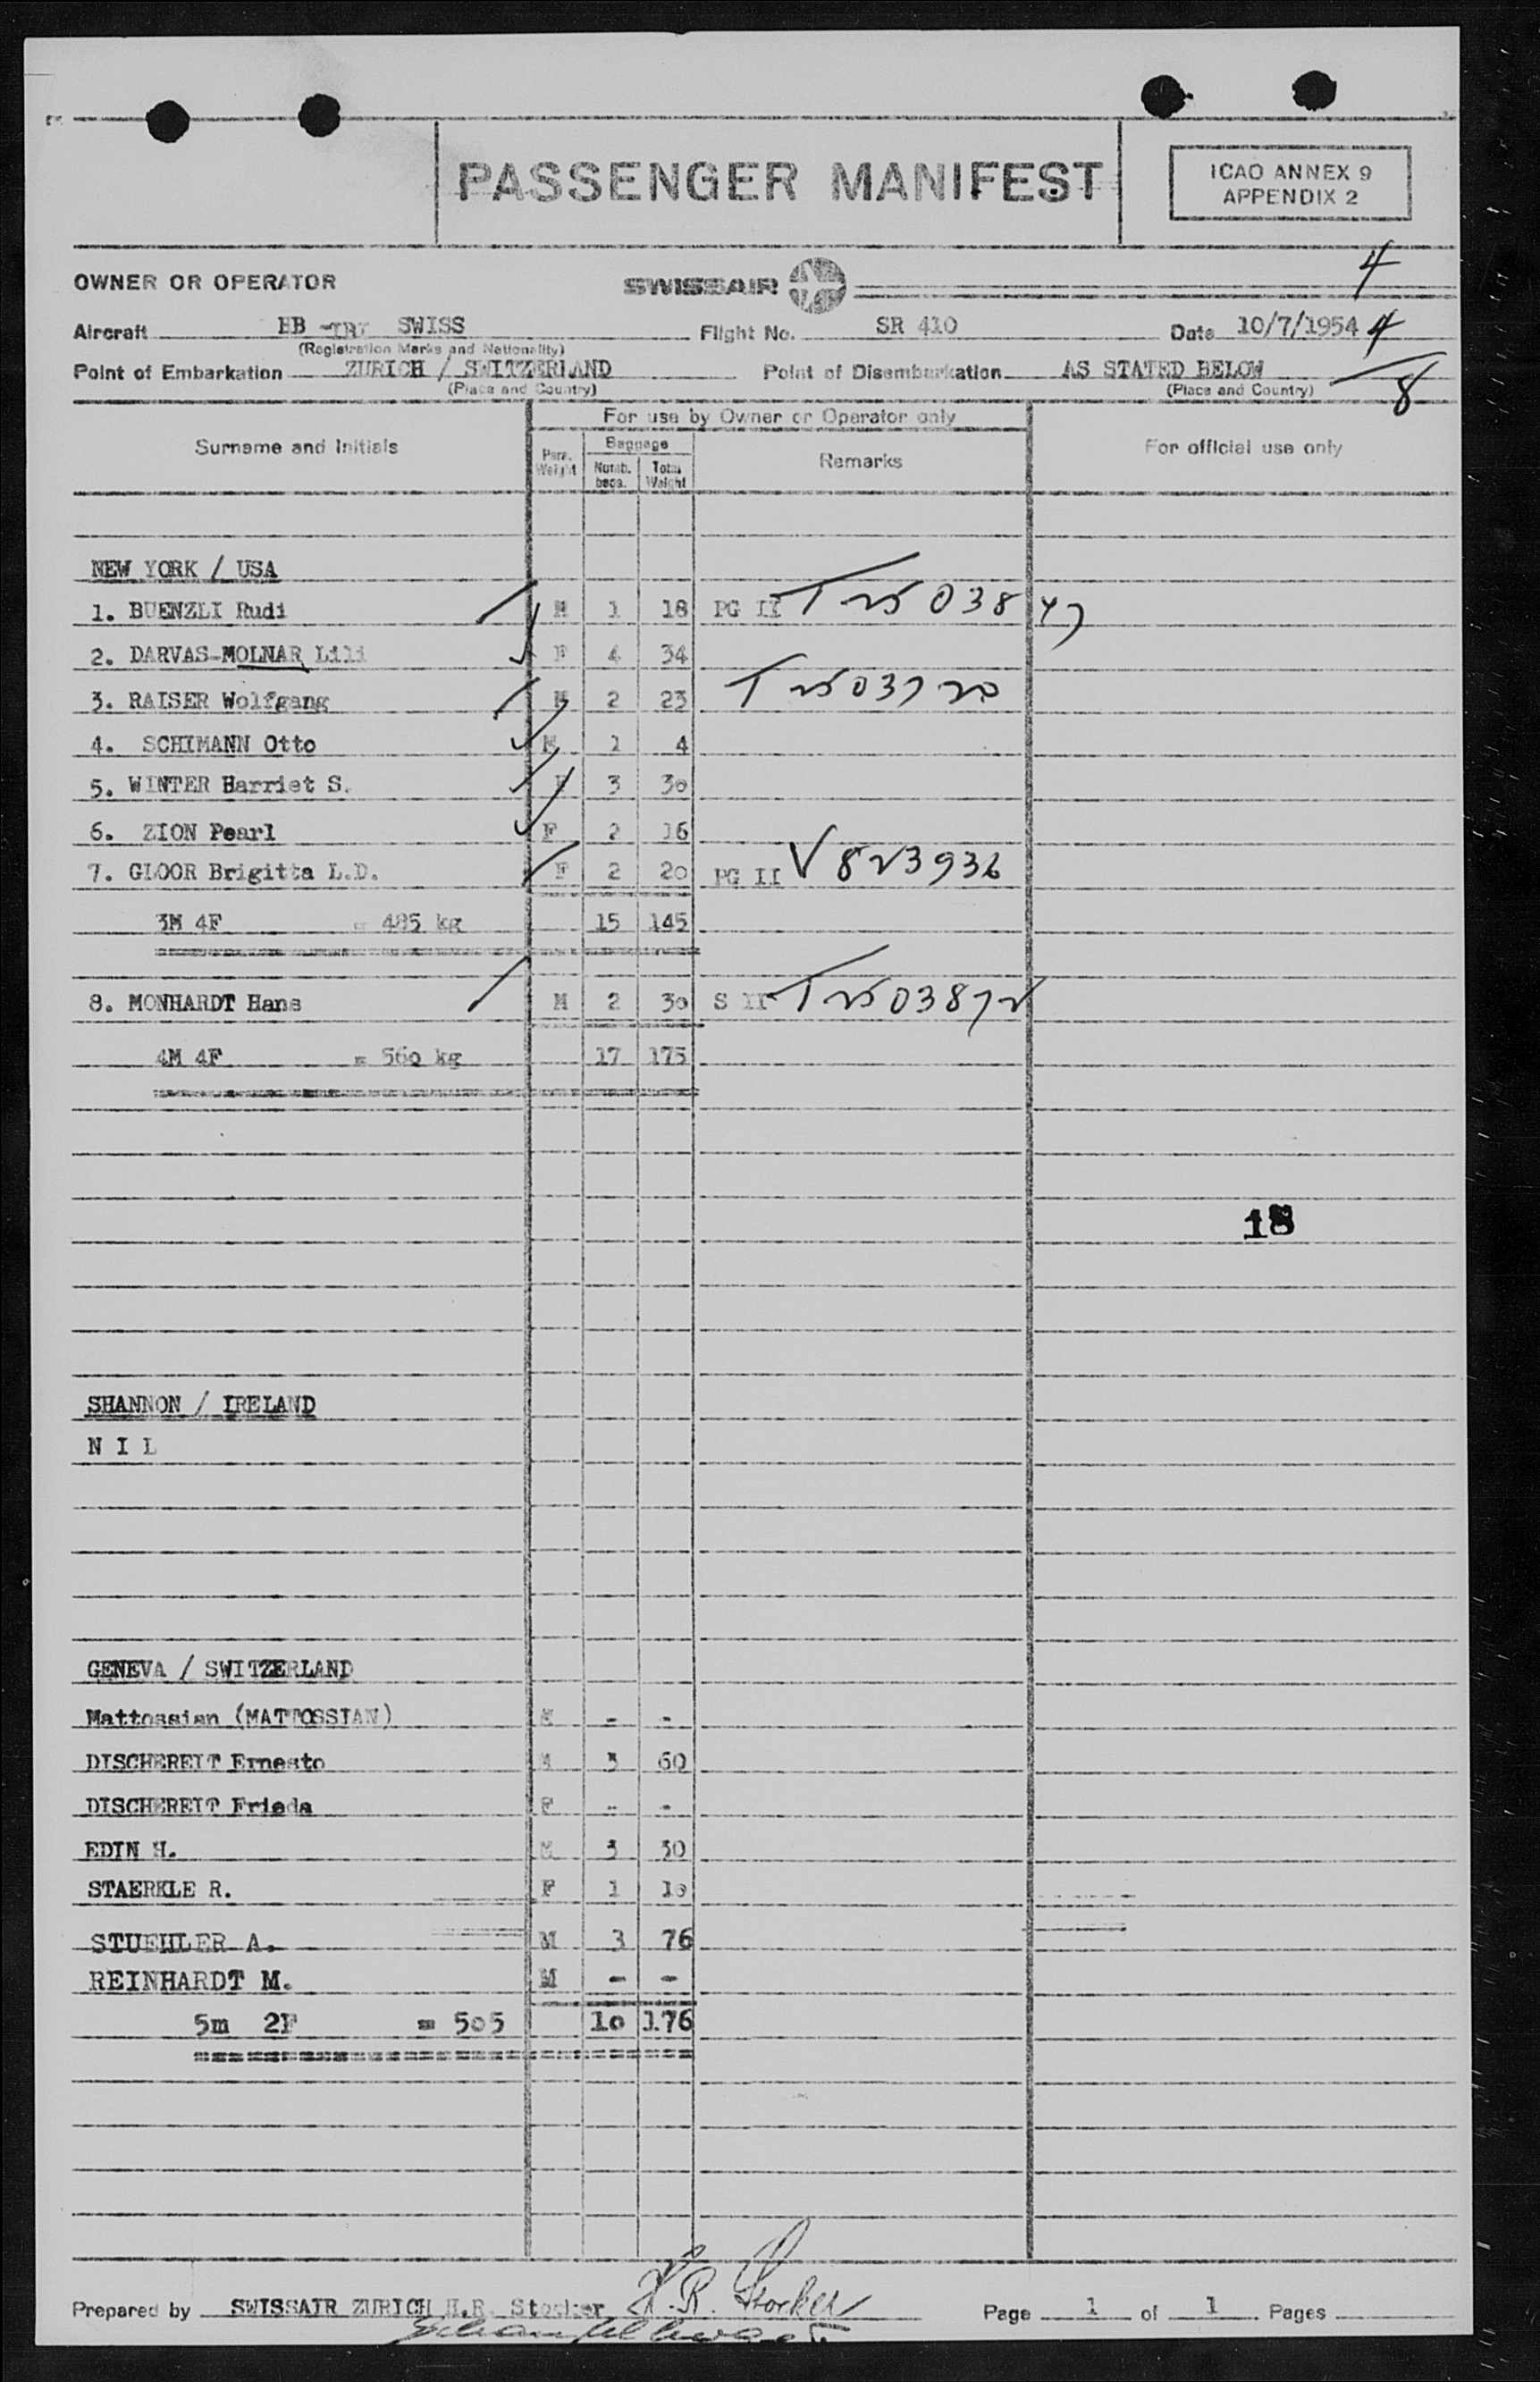 PASSENGER MANIFEST
ICAO ANNEX 9
APPENDIX 2
4
OWNER OR OPERATOR SWISSAIR
Aircraft HB SWISS Flight No. SR 410 Date 10/7/1954 4
(Registration Marks and Nationality)
Point of Embarkation ZURICH / SWITZERLAND Point of Disembarkation AS STATED BELOW
(Place and Country) (Place and Country) 8
For use by Owner or Operator only
Surname and Initials Pers. Weight Baggage Numb. bags. Total Weight Remarks For official use only
NEW YORK / USA
1. BUENZLI Rudi M 1 18 PG II
2. DARVAS-MOLNAR Lili F 4 34
3. RAISER Wolfgang M 2 23
4. SCHIMANN Otto M 1 4
5. WINTER Harriet S. F 3 30
6. ZION Pearl F 2 16
7. GLOOR Brigitta L.D. F 2 20 PG II V 823936
3M 4F = 485 kg 15 145
8. MONHARDT Hans M 2 30 S II
4M 4F = 560 kg 17 175
18
SHANNON / IRELAND
N I L
GENEVA / SWITZERLAND
Mattossian (MATTOSSIAN) M - -
DISCHEREIT Ernesto M 3 60
DISCHEREIT Frieda F - -
EDIN H. M 3 30
STAERKLE R. F 1 10
STUEHLER A. M 3 76
REINHARDT M. M - -
5m 2F = 505 10 176
Prepared by SWISSAIR ZURICH H.R. Stocker H. R. Stocker Page 1 of 1 Pages